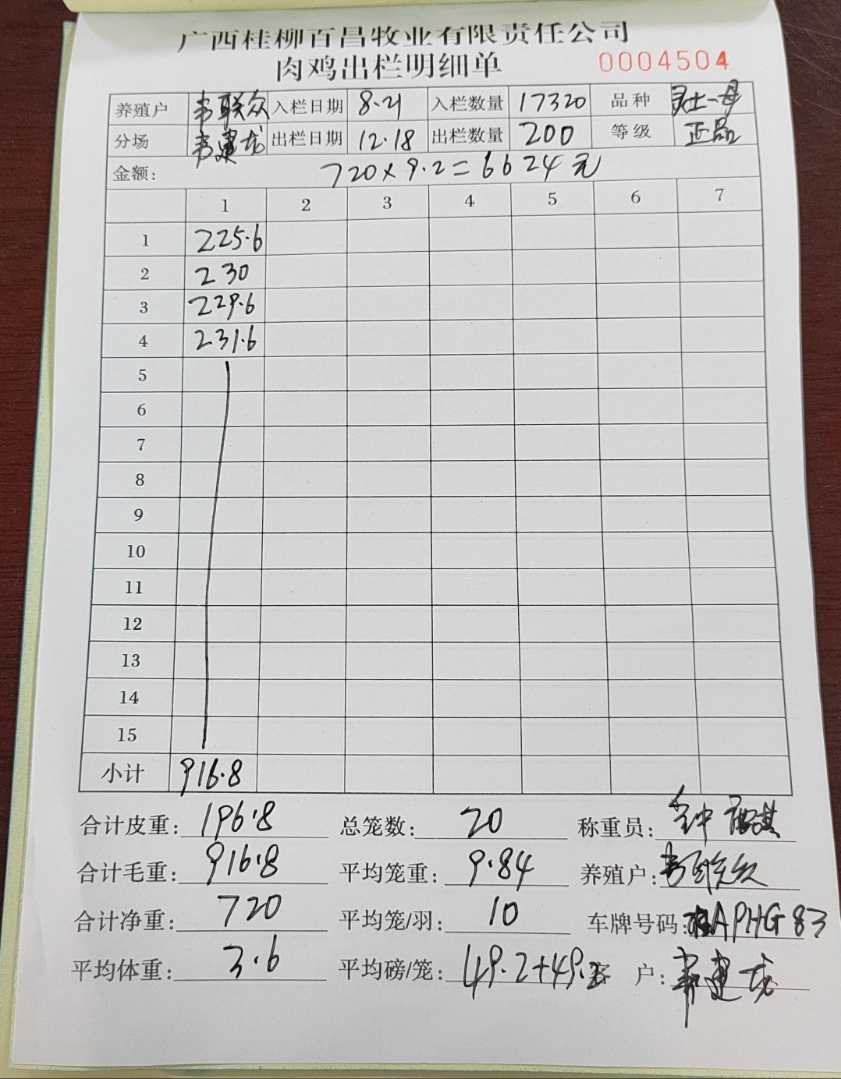 广西桂柳百昌牧业有限责任公司
肉鸡出栏明细单 0004504
养殖户 韦联众 入栏日期 8.21 入栏数量 17320 品种
分场 韦建龙 出栏日期 12.18 出栏数量 200 等级 正品
金额: 720×9.2=6624元
1 2 3 4 5 6 7
1 225.6
2 230
3 229.6
4 231.6
5
6
7
8
9
10
11
12
13
14
15
小计 916.8
合计皮重: 196.8 总笼数: 20 称重员:
合计毛重: 916.8 平均笼重: 9.84 养殖户: 韦联众
合计净重: 720 平均笼/羽: 10 车牌号码: 桂APHG83
平均体重: 3.6 平均磅/笼: 49.2+49.2 客户: 韦建龙